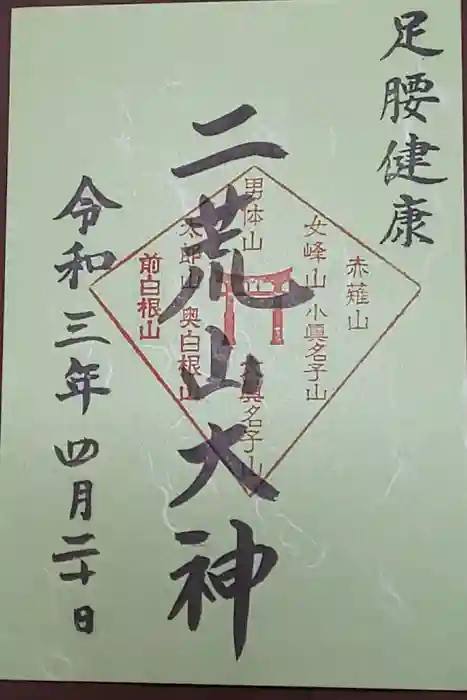 足腰健康
二荒山大神
令和三年四月二十日
赤薙山
女峰山 小眞名子山
男体山
大眞名子山
太郎山 奥白根山
前白根山